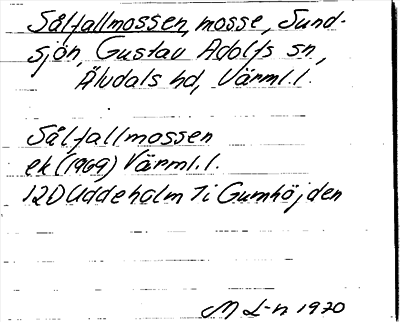 Sålfallmossen, mosse, Sund-
sjön, Gustav Adolfs sn,
Älvdals hd, Värml.l.
Sålfallmossen
ek (1969) Värml.l.
12D Uddeholm 7i Gumhöjden
M L-n 1970